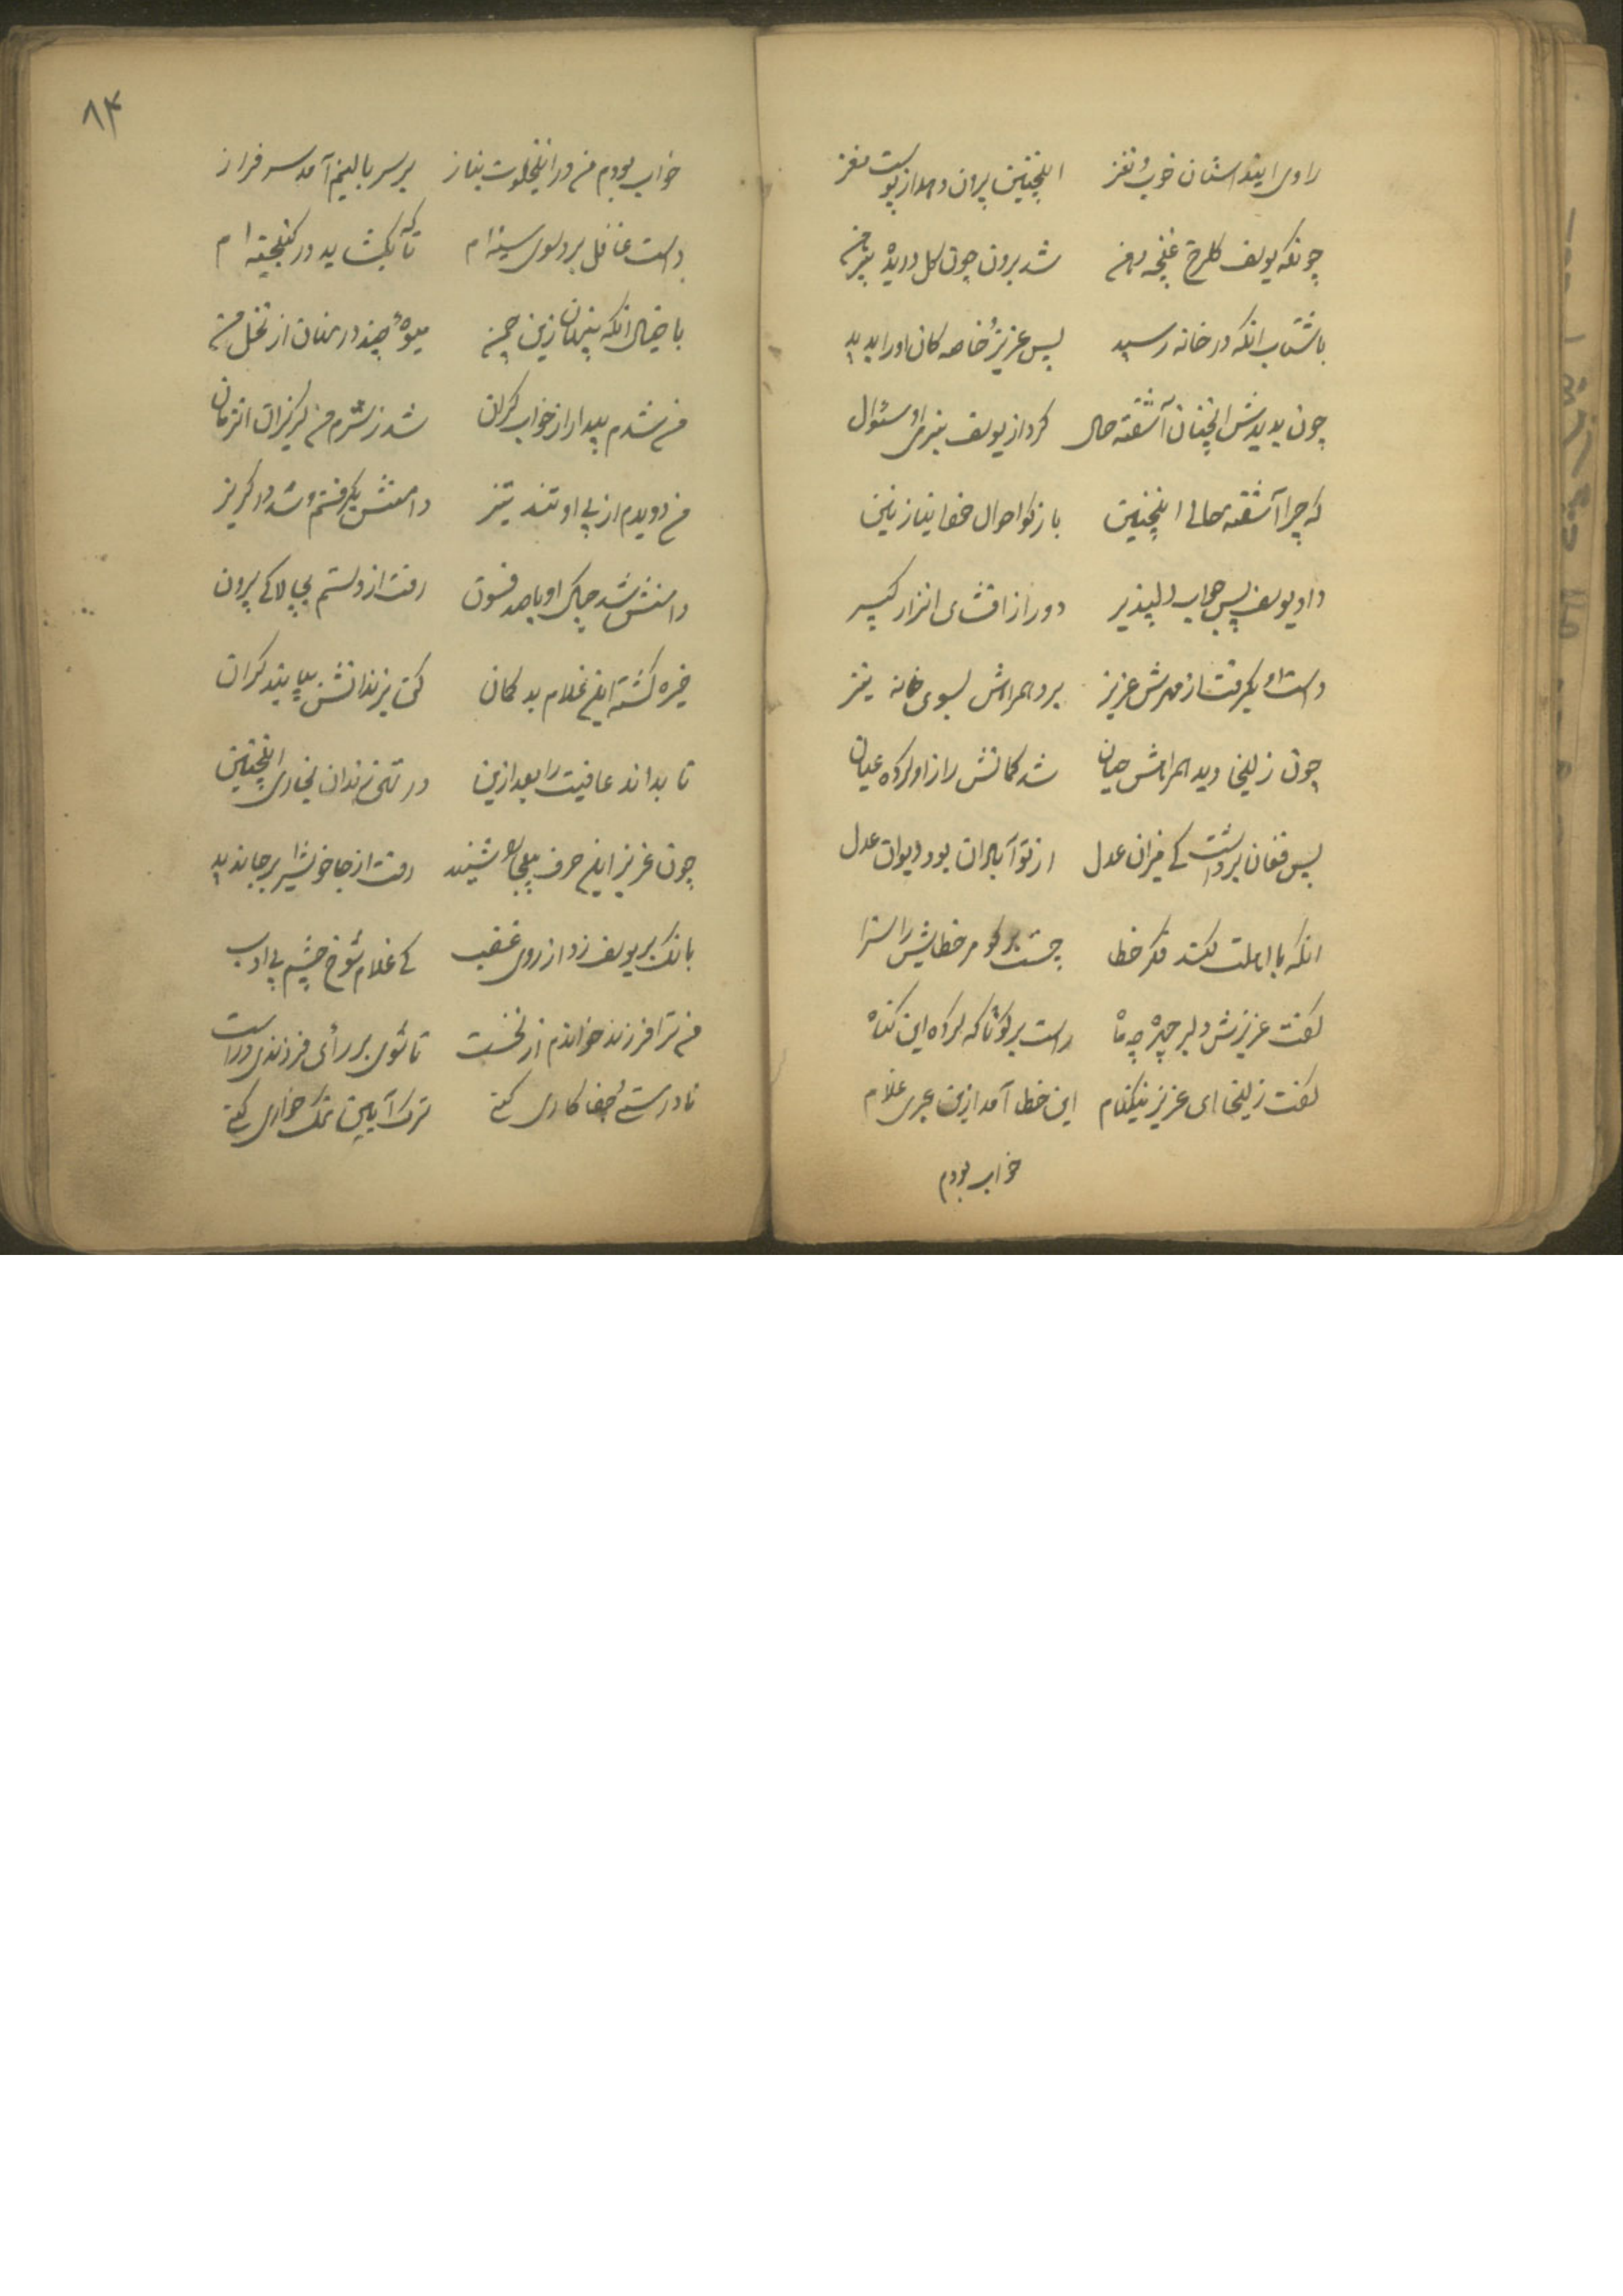 راوی اینداستان خوب نغز اینچنین برون دهد از پوست مغز
چونکه یوسف گلرخ غنچه دهن شد برون چون گل دریده پیرهن
با شتاب آنکه در خانه رسید پس عزیز خاصه کان او را بدید
چون بدیدش آنچنان آشفته حال کرد از یوسف سؤال
که چرا آشفته حالی اینچنین باز گو احوال خود ای نازنین
داد یوسف پس جواب دلپذیر دور از افشای
دست او بگرفت از مهرش عزیز برد همراهش بسوی خانه نیز
چون زلیخا دید همراهش چنان شد گمانش راز او کرده عیان
پس فغان برداشت کی میزان عدل از تو آبادان بود دیوان عدل
آنکه با اهلت کند فکر خطا چیست بر گو مر خطایش را سزا
گفت عزیزش دلبر چهره چو ماه راست بر گو تا که کرده این گناه
گفت زلیخا ای عزیز نیکنام این خطا آمد ازین عبری غلام
خواب بودم
۸۴
خواب بودم من در اینخلوت بناز بر سر بالینم آمد سرفراز
دست غافل برد سوی سینه ام تا که بگشاید در گنجینه ام
با خیال آنکه پنهان زین چمن میوهٔ چیند در بستان از نخل من
من شدم بیدار از خواب گران شد ز شرم من گریزان آنزمان
من دویدم از پی او تند تیز دامنش بگرفتم و شد در گریز
دامنش شد چاک او با صد فسون رفت از دستم بچالاکی برون
خیره گشته این غلام بد گمان کن بزندانش بپا بند گران
تا بداند عافیت را بعد ازین در زندان بخواری اینچنین
چون عزیز این حرف بیجا را شنید رفت از جا خویش را بر جا ندید
بانگ بر یوسف زد از روی غضب کی غلام شوخ چشم بی ادب
من ترا فرزند خواندم از نخست تا شوی بر رأی فرزندی درست
نادرستی جفا کاری کنی ترک آیین نمک خواری کنی